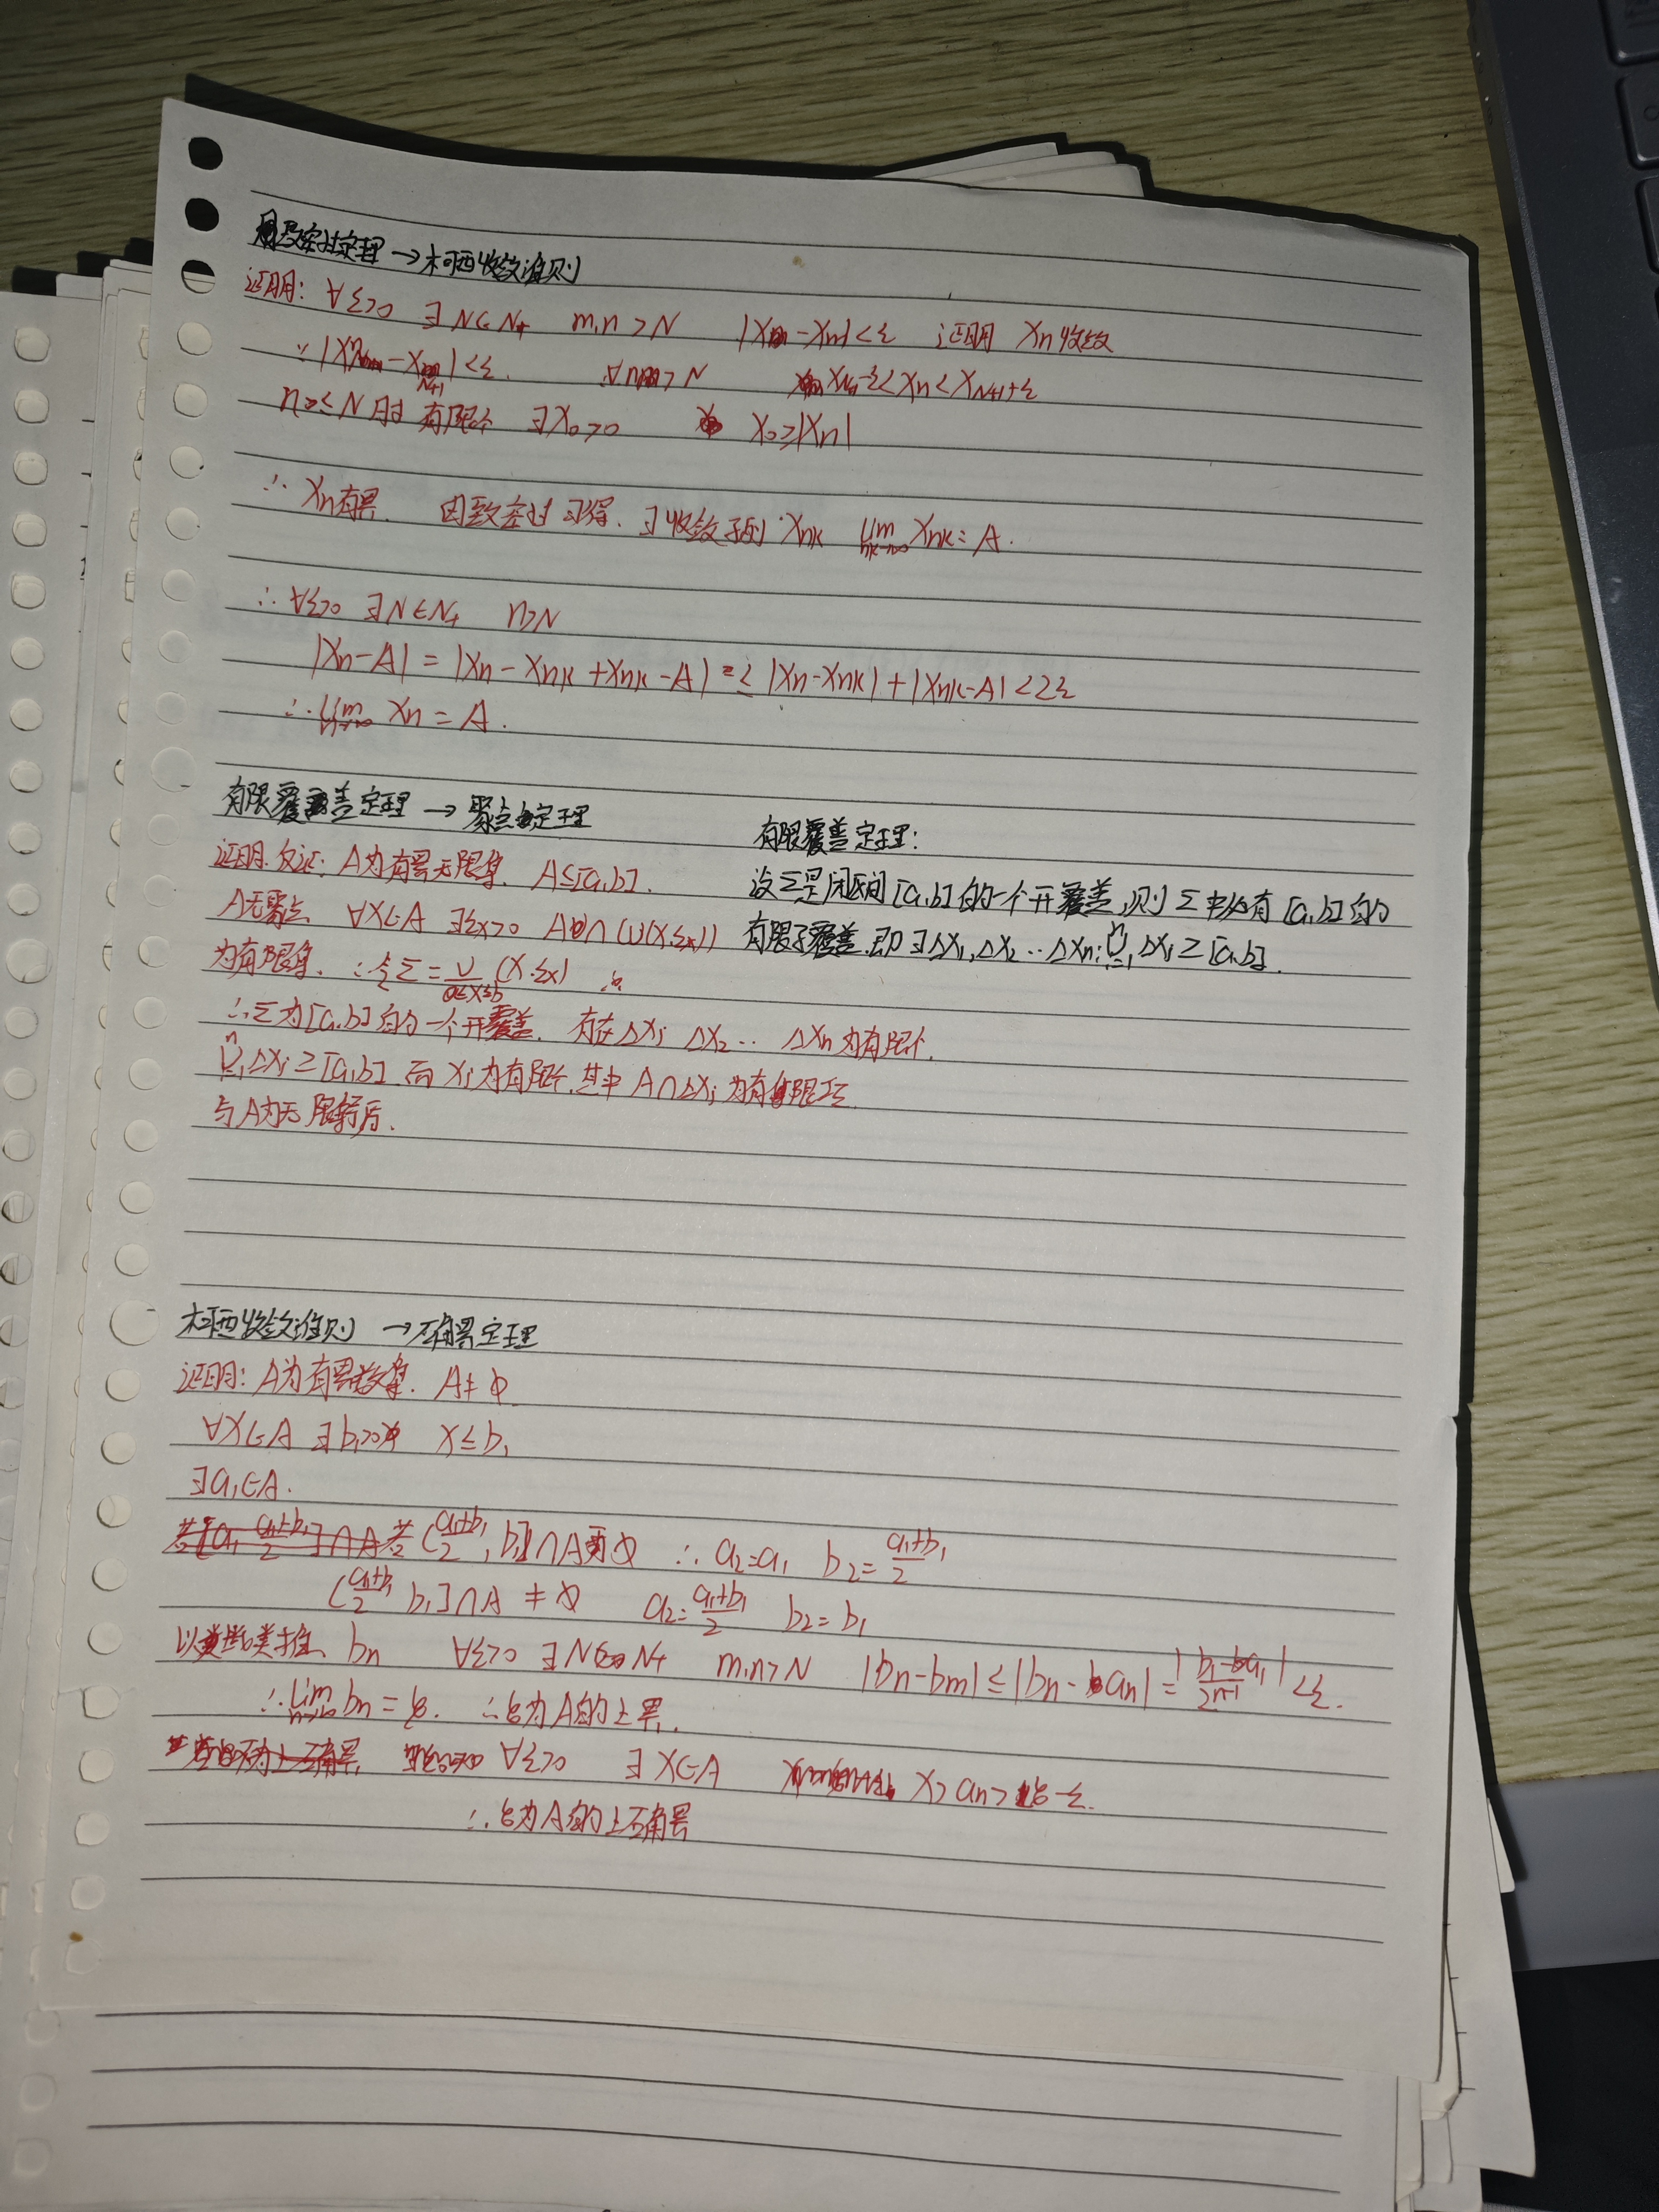 致密性定理 → 柯西收敛准则
证明: ∀ε>0 ∃N∈N₊ m,n>N |Xm-Xn|<ε 证明 Xn收敛
∵ |Xn-X_{N+1}|<ε. ∀n>N X_{N+1}-ε<Xn<X_{N+1}+ε
n≤N时 有限个 ∃X₀>0 X₀≥|Xn|
∴ Xn有界. 因致密性 可得. ∃收敛子列 Xnk lim_{nk→∞} Xnk=A.
∴ ∀ε>0 ∃N∈N₊ n>N
|Xn-A| = |Xn-Xnk+Xnk-A| ≤ |Xn-Xnk|+|Xnk-A|<2ε
∴ lim_{n→∞} Xn=A.
有限覆盖定理 → 聚点定理
证明.反证: A为有界无限集. A⊆[a,b].
A无聚点 ∀X∈A ∃εx>0 A∩(U(X,εx))
为有限集. ∴令Σ=∪_{a≤x≤b}(X,εx)
∴Σ为[a,b]的一个开覆盖. 存在ΔX₁ ΔX₂… ΔXn为有限个.
∪ⁿᵢ₌₁ΔXi⊇[a,b]. 而Xi为有限个.其中A∩ΔXi为有限项
与A为无限矛盾.
有限覆盖定理:
设Σ是闭区间[a,b]的一个开覆盖,则Σ中必有[a,b]的
有限子覆盖.即∃ΔX₁,ΔX₂…ΔXn; ∪ⁿᵢ₌₁ΔXi⊇[a,b].
柯西收敛准则 → 确界定理
证明: A为有界数集. A≠∅
∀X∈A ∃b₁ X≤b₁
∃a₁∈A.
若(\frac{a₁+b₁}{2},b₁]∩A=∅ ∴a₂=a₁ b₂=\frac{a₁+b₁}{2}
(\frac{a₁+b₁}{2} b₁]∩A≠∅ a₂=\frac{a₁+b₁}{2} b₂=b₁
以此类推 bn ∀ε>0 ∃N∈N₊ m,n>N |bn-bm|≤|bn-an|=|\frac{b₁-a₁}{2^{n-1}}|<ε.
∴lim_{n→∞}bn=ξ. ∴ξ为A的上界.
∀ε>0 ∃X∈A X>an>ξ-ε.
∴ξ为A的上确界